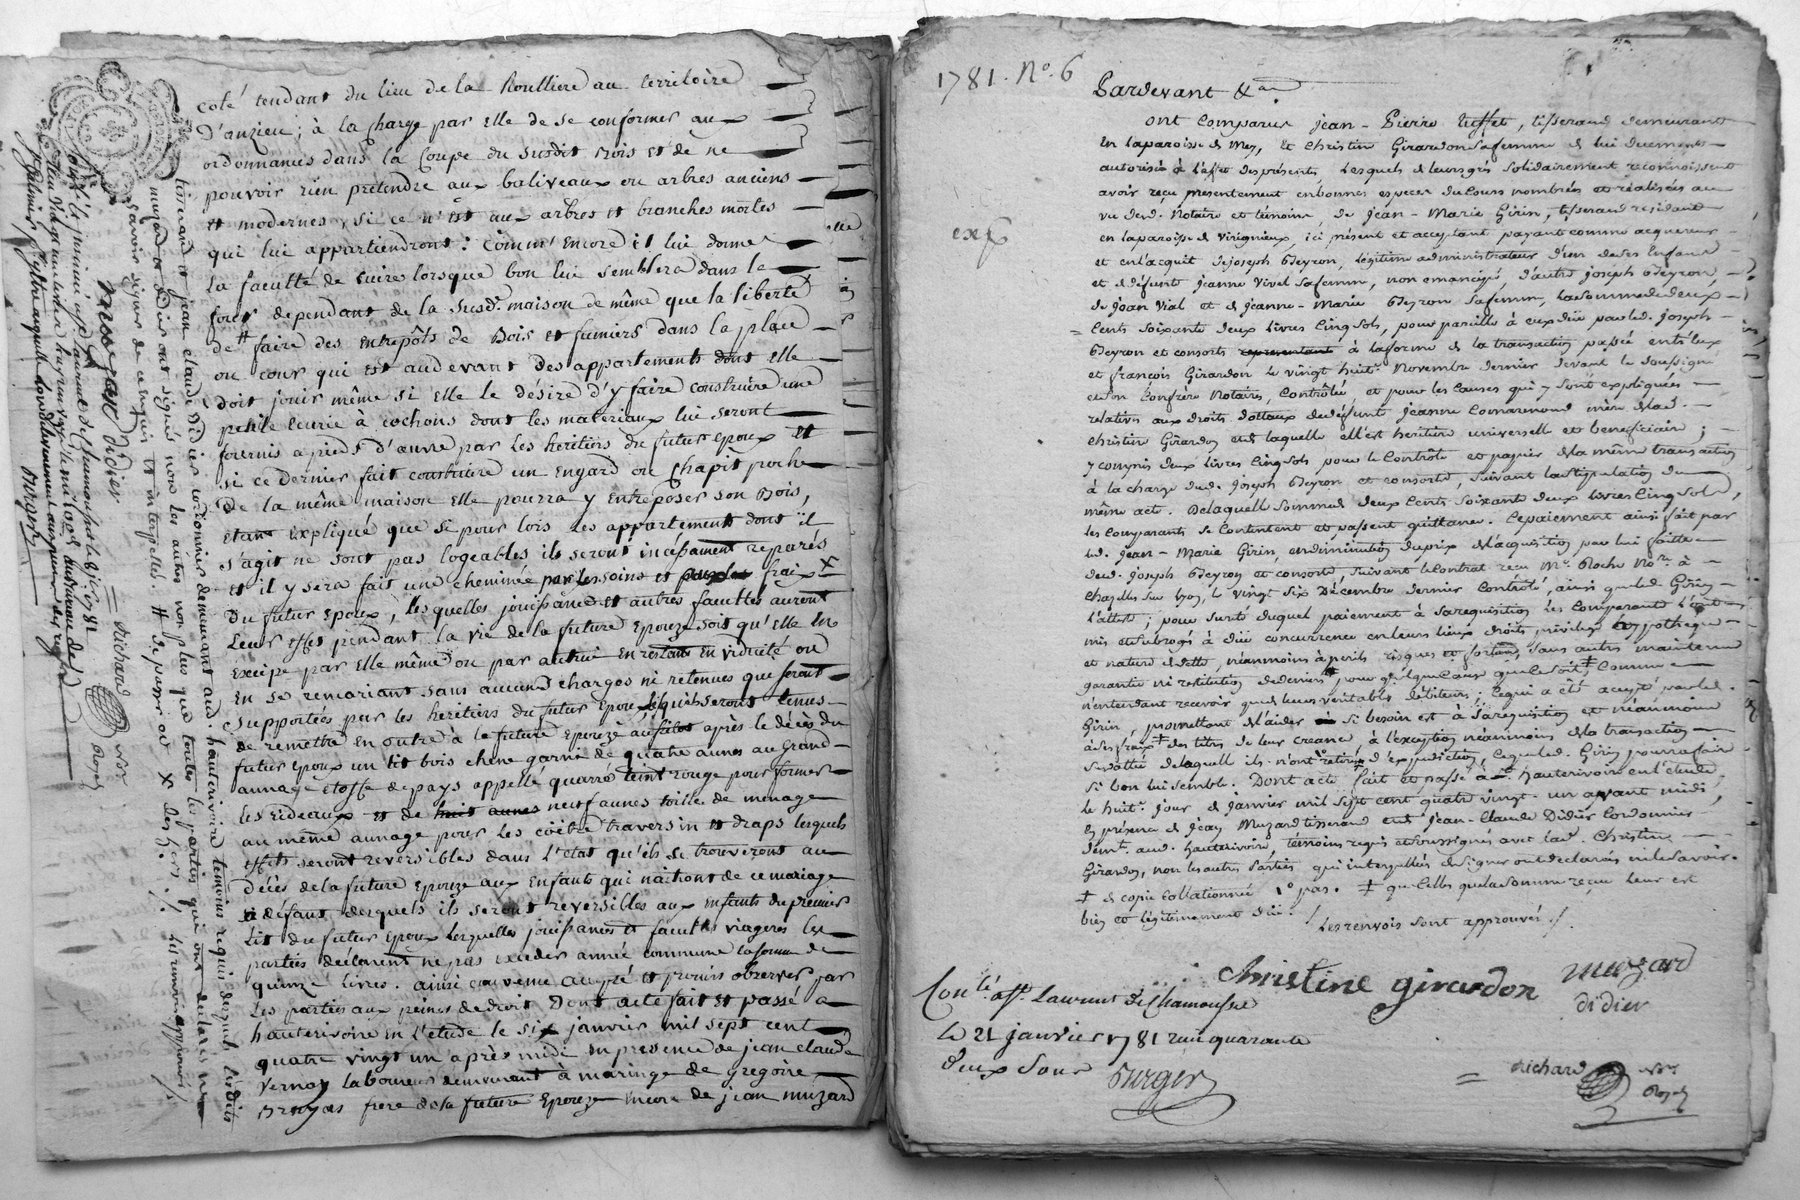 coté tendant du lieu de la Roulliere au territoire
d'anzieu; à la charge par elle de se conformer aux
ordonnances dans la coupe du susdit Bois et de ne
pouvoir rien prétendre aux baliveaux ou arbres anciens
et modernes, si ce n'est aux arbres et branches mortes
qui lui appartiendront: comm' encore il lui donne
la faculté de cuire lorsque bon lui semblera dans le
four dependant de la susd. maison de même que la liberté
de # faire des entrepôts de Bois et fumiers dans la place
ou cour qui est audevant des appartements dont elle
doit jouir même si elle le désire d'y faire construire une
petite ecurie à cochons dont les materiaux lui seront
fournis a pied d'œuvre par les heritiers du futur epoux et
si ce dernier fait construire un engard ou chapit proche
de la même maison elle pourra y entreposer son Bois,
etant expliqué que si pour lors les appartements dont il
s'agit ne sont pas logeables ils seront incéssament reparés
et il y sera fait une cheminée par les soins et fraix X
du futur epoux, lesquelles jouissances et autres facultés auront
leur effet pendant la vie de la future epouze soit qu'elle en
excipe par elle même ou par autrui en restant en viduité ou
en se remariant sans aucunes charges ni retenues que seront
supportées par les heritiers du futur epoux, lesquels seront tenus
de remettre en outre à la future epouze aussitot après le décès du
futur epoux un lit bois chene garni de quatre aunes au grand
aunage etoffe de pays appellé quarré teint rouge pour former
les rideaux et de huit aunes neuf aunes toille de menage
au même aunage pour les coëtre traversin et draps lesquels
effets seront reversibles dans l'état qu'ils se trouveront au
décès de la future epouze aux enfants qui naitront de ce mariage
à défaut desquels ils seront reversibles aux enfants du premier
lit du futur epoux lesquelles jouissances et facultés viageres les
parties déclarent ne pas exceder année commune la somme de
quinze livres. ainsi convenu accepté et promis observer par
les parties aux peines de droit Dont acte fait et passé a
hauterivoire en l'etude le six janvier mil sept cent
quatre vingt un après midi en presence de jean claude
Vernay laboureur demeurant à maringe de gregoire
Bruyas frere de la future epouze encore de jean muzard
tisserand et jean claude Didier cordonnier demeurant aud. hauterivoire temoins requis desquels lesdits
muzard et didier ont signés non les autres non plus que toutes les parties qui ont declarés ne
savoir signer de ce enquis et interpellés. # de parvi ou X des hers ./. les renvois approuvés ./.
muzard didier
Richard Nre
Royal
Burger
1781. No. 6
Pardevant &a
exp
ont comparus jean-Pierre Tuffet, tisserand demeurant
en la paroisse de Mey, et Christine Girardon sa femme de lui duement
autorisée à l'effet des présentes, Lesquels de leurs grés solidairement reconnoissent
avoir reçu presentement en bonnes especes du cours nombrées et réalisées au
vu desd. Notaire et témoins, de jean-Marie Girin, tisserand residant
en la paroisse de Virigneux, ici présent et acceptant payant comme acquereur
et en l'acquit de joseph Peyron, légitime administrateur d'un de ses Enfans
et de défunte jeanne Vivel sa femme, non emancipé, d'autre joseph Peyron,
de jean Vial et de jeanne-Marie Peyron sa femme, la somme de deux
cents soixante deux livres cinq sols, pour pareille à eux düe par led. joseph
Peyron et consorts representant à la forme de la transaction passée entr'eux
et françois Girardon le vingt huit. Novembre dernier devant le soussigné
et son Confrère Notaires, Contrôlée, et pour les causes qui y sont expliquées
relatives aux droits dottaux de défunte jeanne Comarmond mère de lad.
Christine Girardon et de laquelle elle est heritiere universelle et beneficiaire;
y compris deux livres cinq sols pour le Contrôle et papier de la même transaction
à la charge dud. joseph Peyron et consorts, suivant la stipulation du
même acte. De laquelle somme de deux cents soixante deux livres cinq sols,
les comparants se contentent et passent quittance. Le paiement ainsi fait par
led. jean-Marie Girin, en diminution du prix de l'acquisition par lui faitte
dud. joseph Peyron et consorts suivant le contrat reçu Me. Roche Nore. à
Chazelles sur Lyon, le vingt six Décembre dernier Contrôlé, ainsi que led. Girin
l'atteste; pour sureté duquel paiement à sa requisition les comparants l'ont
mis et subrogé à düe concurrence en leurs lieux droits, privileges hypotheque
et nature de dette, néanmoins à perils risques et fortunes sans autre maintenue
garantie ni restitution de deniers pour quelque cause que ce soit ‡ comme
n'entendant recevoir que de leurs véritables débiteurs; ce qui a été accepté par led.
Girin, promettant de l'aider si besoin est à sa requisition et néanmoins
à ses fraix + des titres de leur creance, à l'exception néanmoins de la transaction
susdatée de laquelle ils n'ont retiré d'expedition, Lequel led. Girin pourra faire
si bon lui semble. Dont acte fait et passé à hauterivoire en l'etude,
le huit. jour de janvier mil sept cent quatre vingt un avant midi,
En présence de jean Muzard tisserand et de jean-Claude Didier Cordonnier
demt. aud. hauterivoire, témoins requis et soussignés avec lad. Christine
Girardon, non les autres parties qui interpellées de signer ont déclarés ne le savoir.
+ de copie collationnée 1° par. ‡ que celle que la somme reçue leur est
bien et légitimement düe. / Les renvois sont approuvés ./.
christine girardon muzard
didier
Conlé. a St. Laurent de Chamousset
Le 21 janvier 1781 reçu quarante
deux sous Burger
Richard Nre
Royal